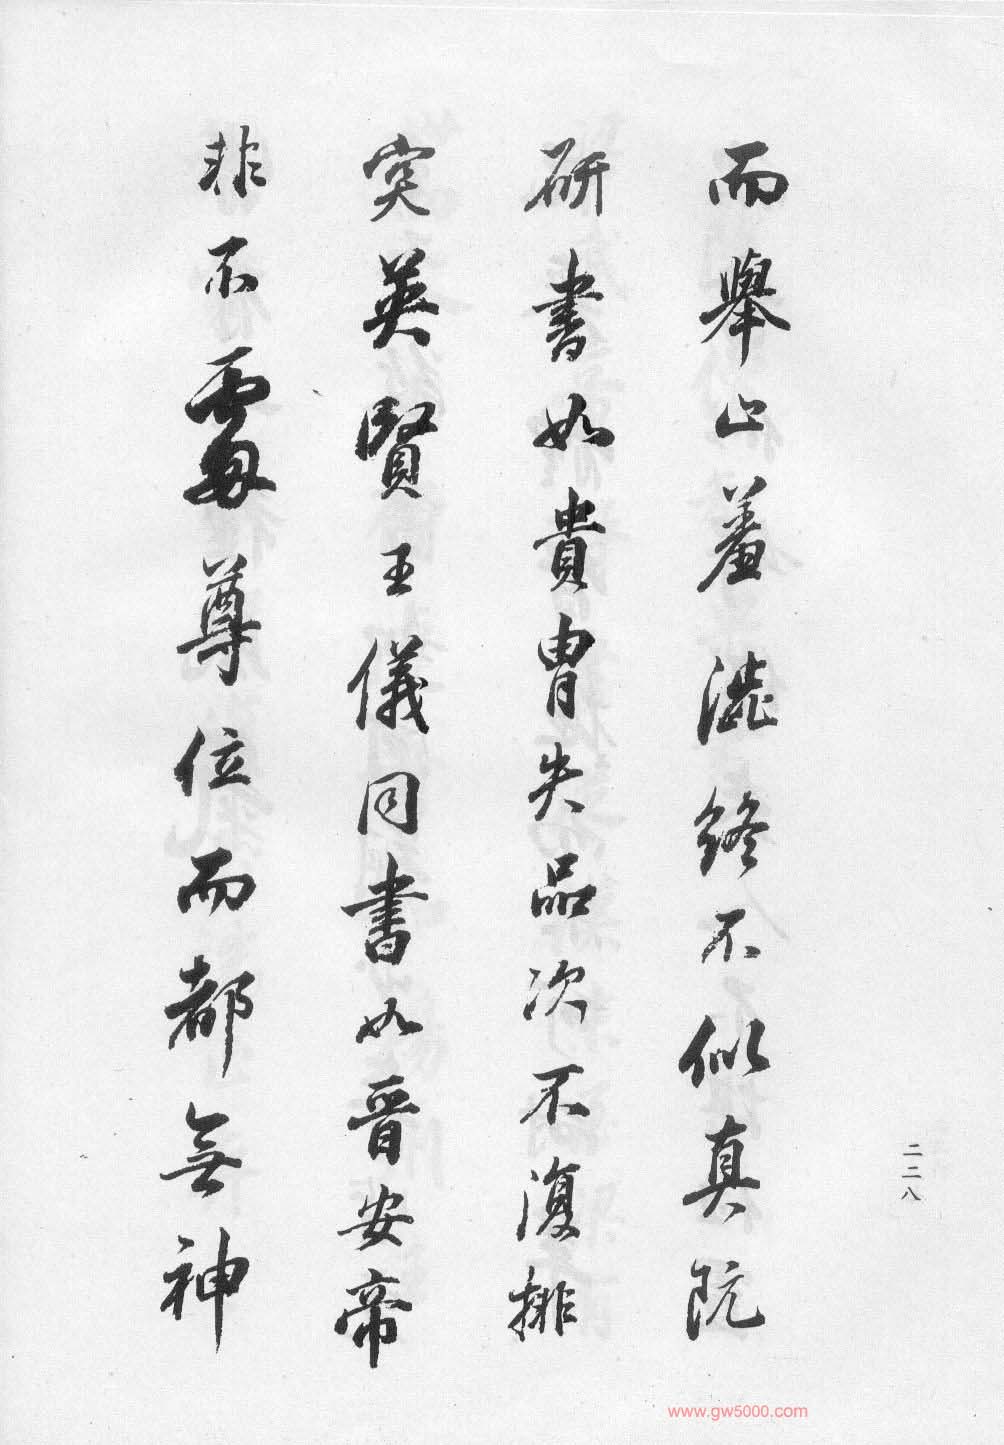 而舉止羞澁終不似真阮
研書如貴冑失品次不復排
突英賢王儀同書如晉安帝
非不處尊位而都無神
二二八
www.gw5000.com